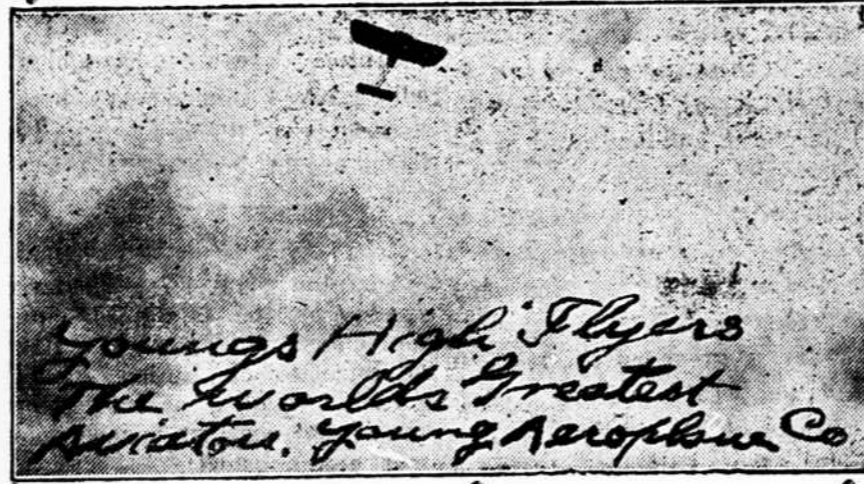 Youngs High Flyers
The Worlds Greatest
Aviators. Young Aeroplane Co.